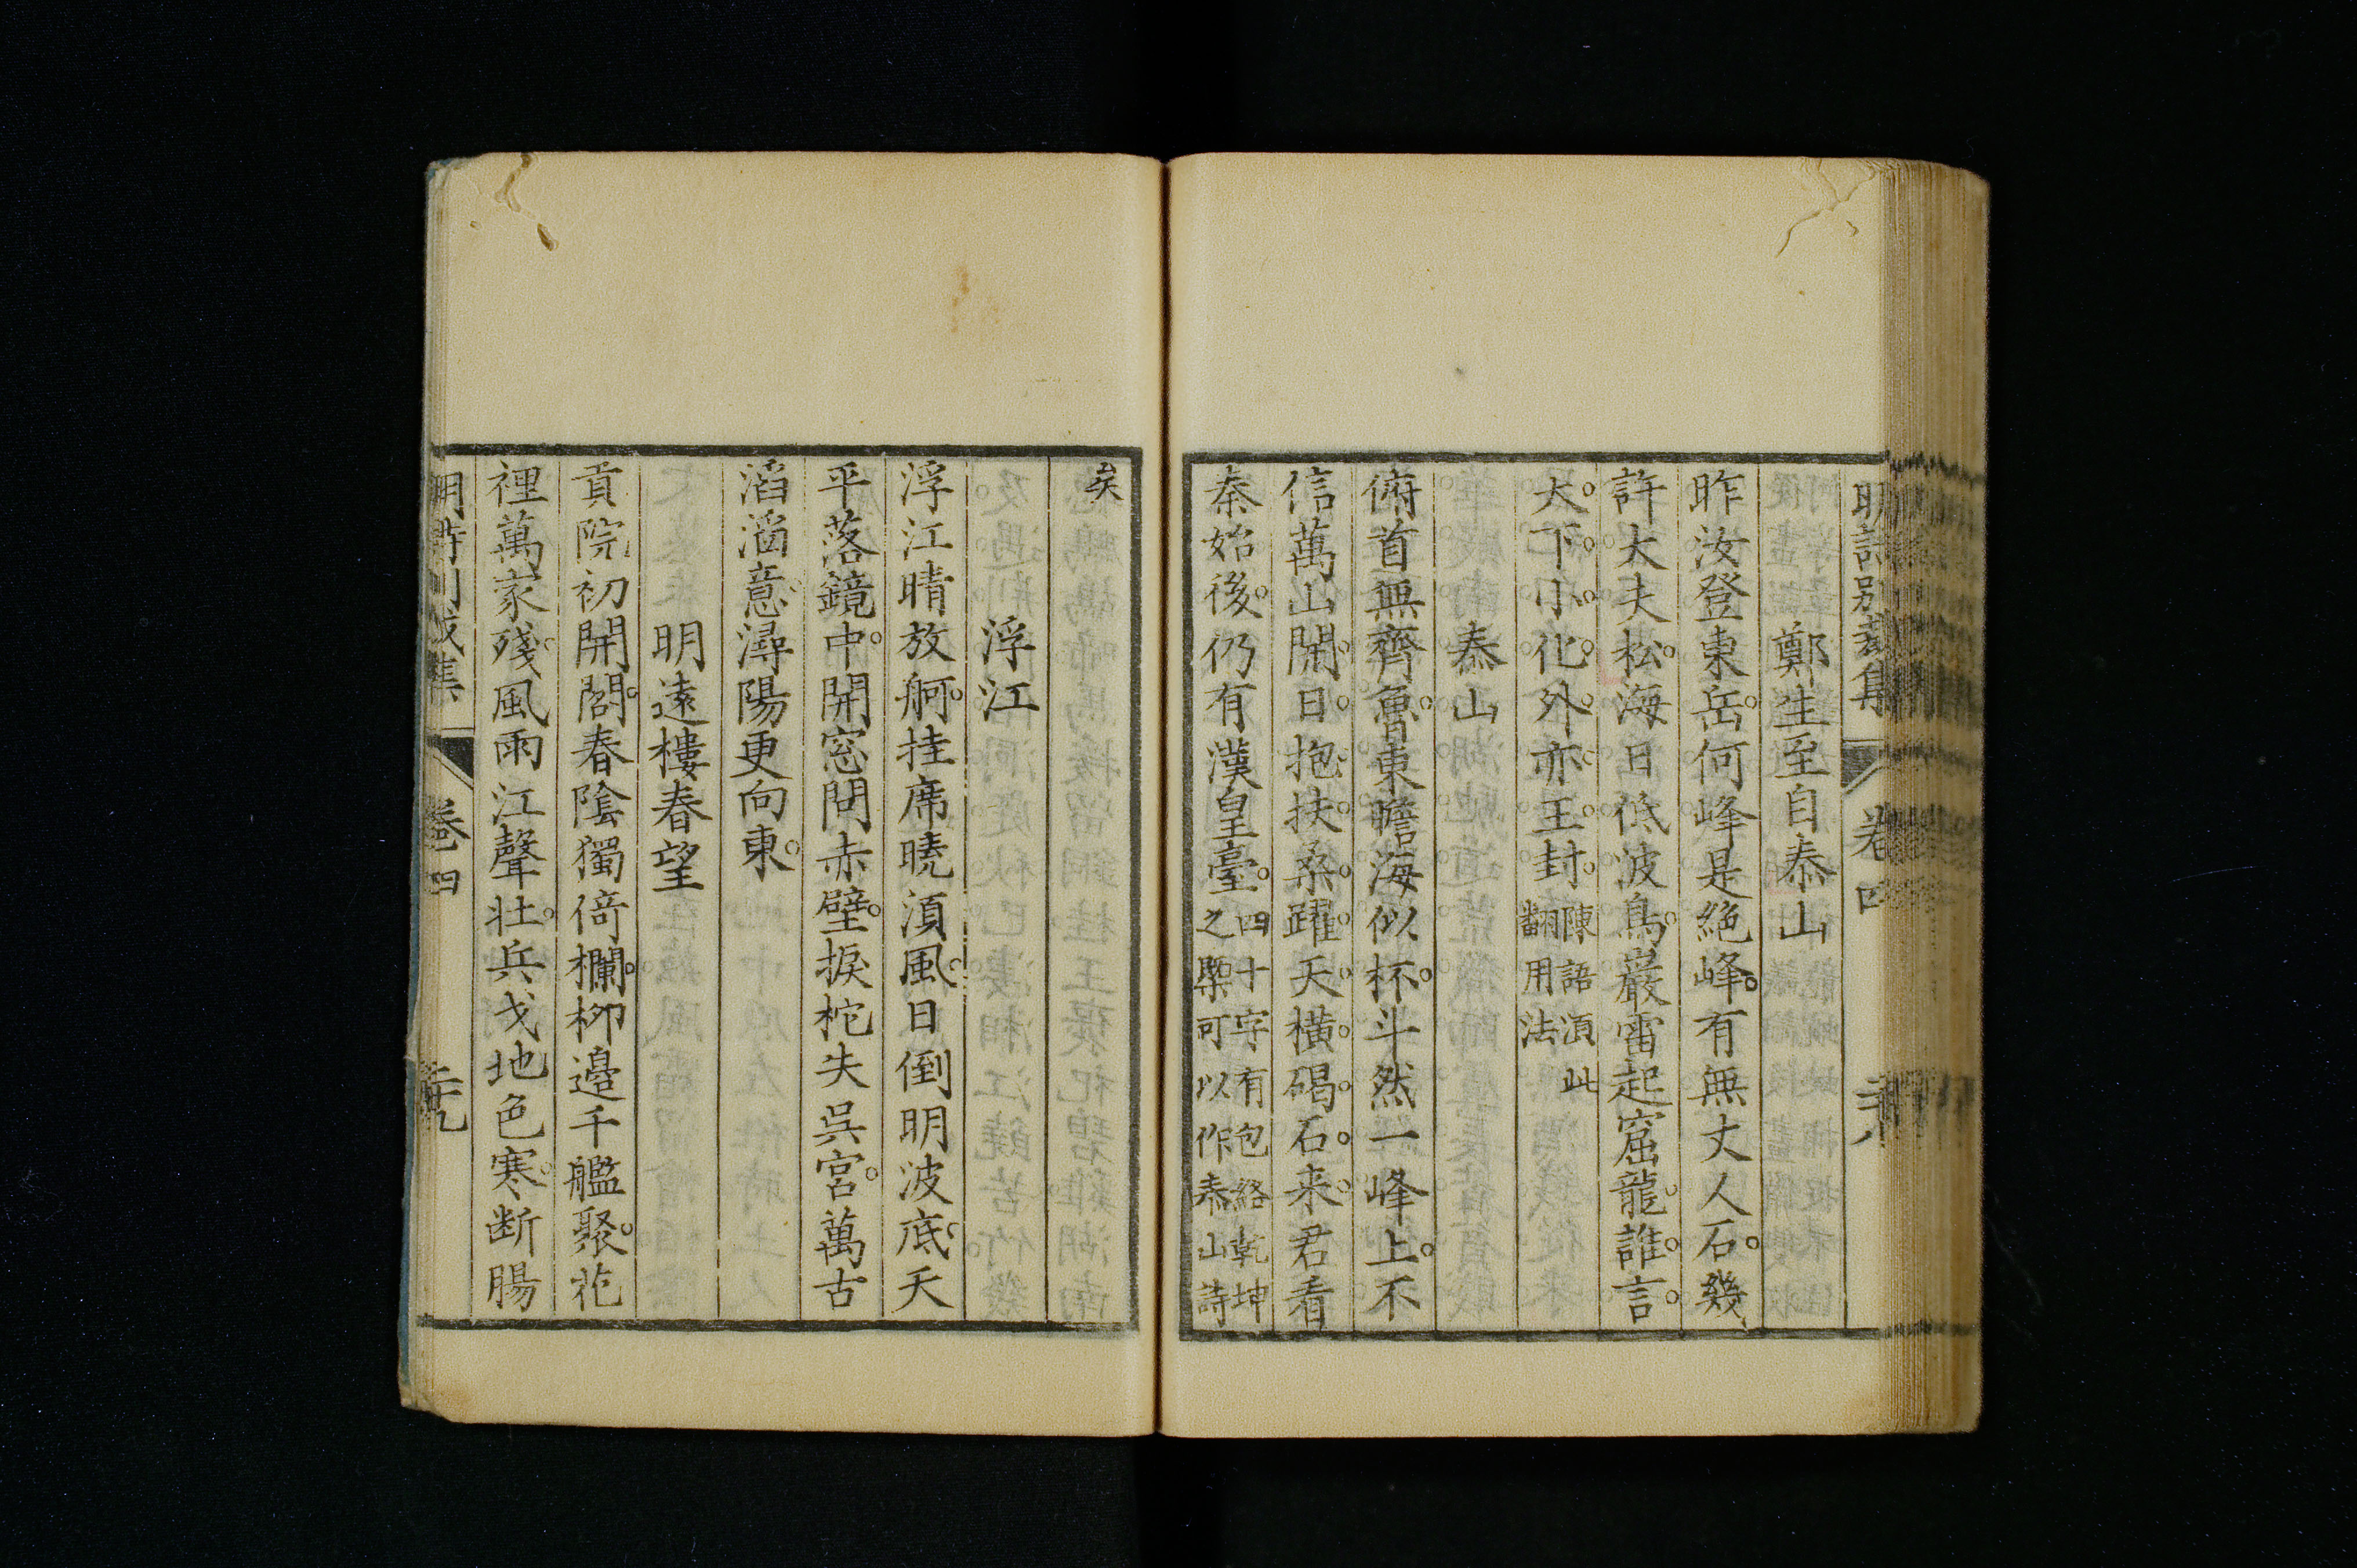 明詩別裁集 卷四
鄭生至自泰山
昨汝登東岳。何峰是絶峰。有無丈人石。幾
許大夫松。海日低波鳥。巖雷起窟龍。誰言。
天。下。小。化。外。亦。王。封。陳語湏此
翻用法
泰山
俯首無齊魯。東瞻海似杯。斗然一峰上。不
信萬山開。日。抱。扶。桑。躍。天。橫。碣。石。来。君看
秦始後。仍有漢皇臺。四十字有包絡乾坤
之槩可以作泰山詩
矣
浮江
浮江晴放舸。挂席曉湏風。日倒明波底。天
平落鏡中。開窓問赤壁。捩柁失呉宮。萬古
滔滔意。潯陽更向東。
明遠樓春望
貢院初開閣。春陰獨倚欄。栁邉千艦聚。花
裡萬家殘。風雨江聲壮。兵戈地色寒。断腸
明詩別裁集 卷四 二十九